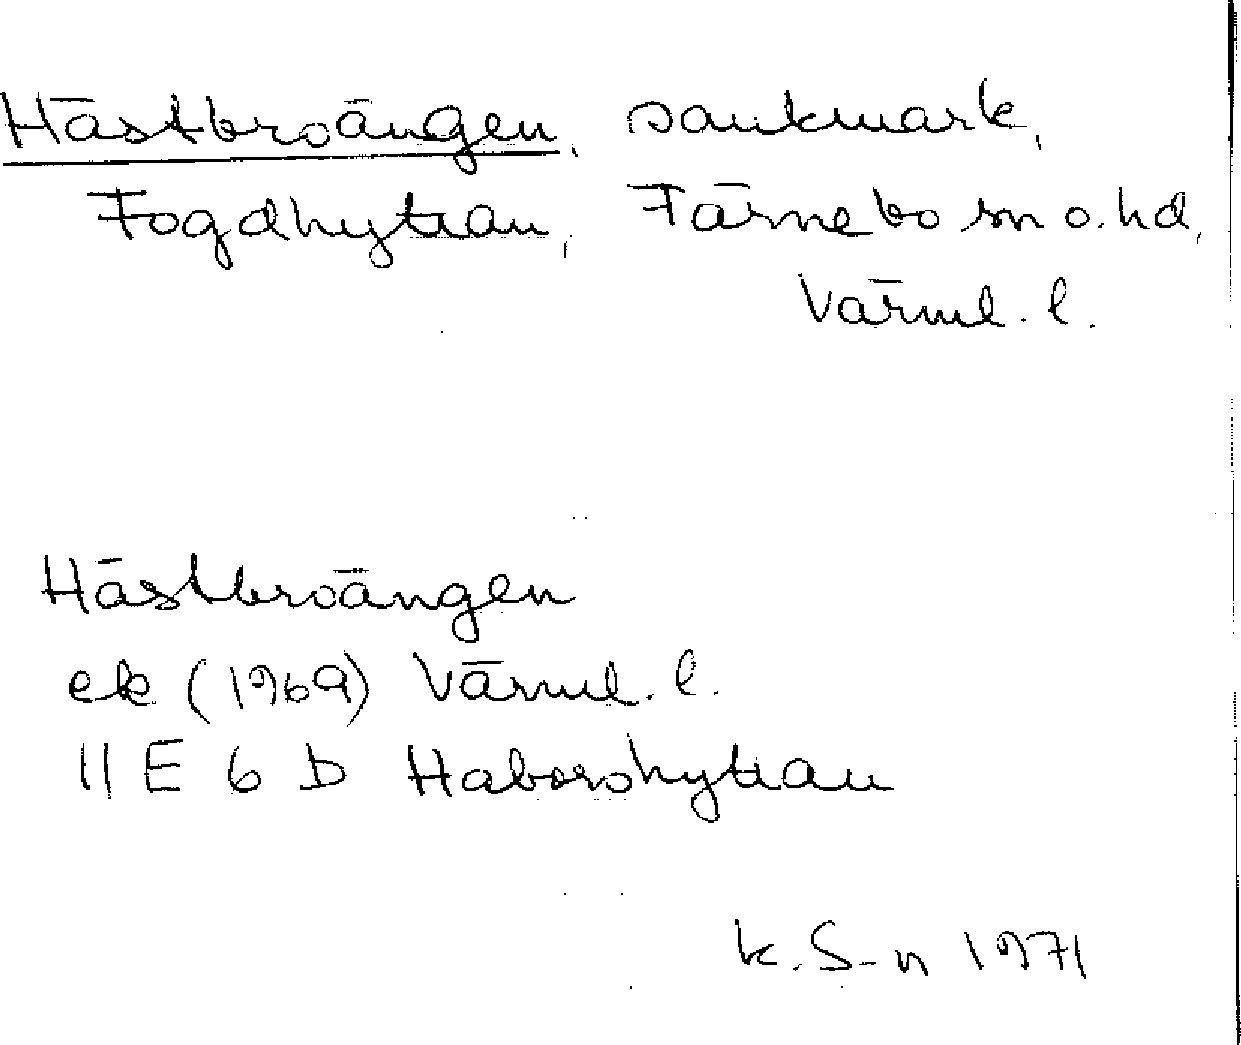 Hästbroängen, sankmark,
Fogdhyttan, Färnebo sn o. hd,
Värml. l.
Hästbroängen
ek (1969) Värml. l.
11 E 6 D Haborshyttan
K. S-n 1971